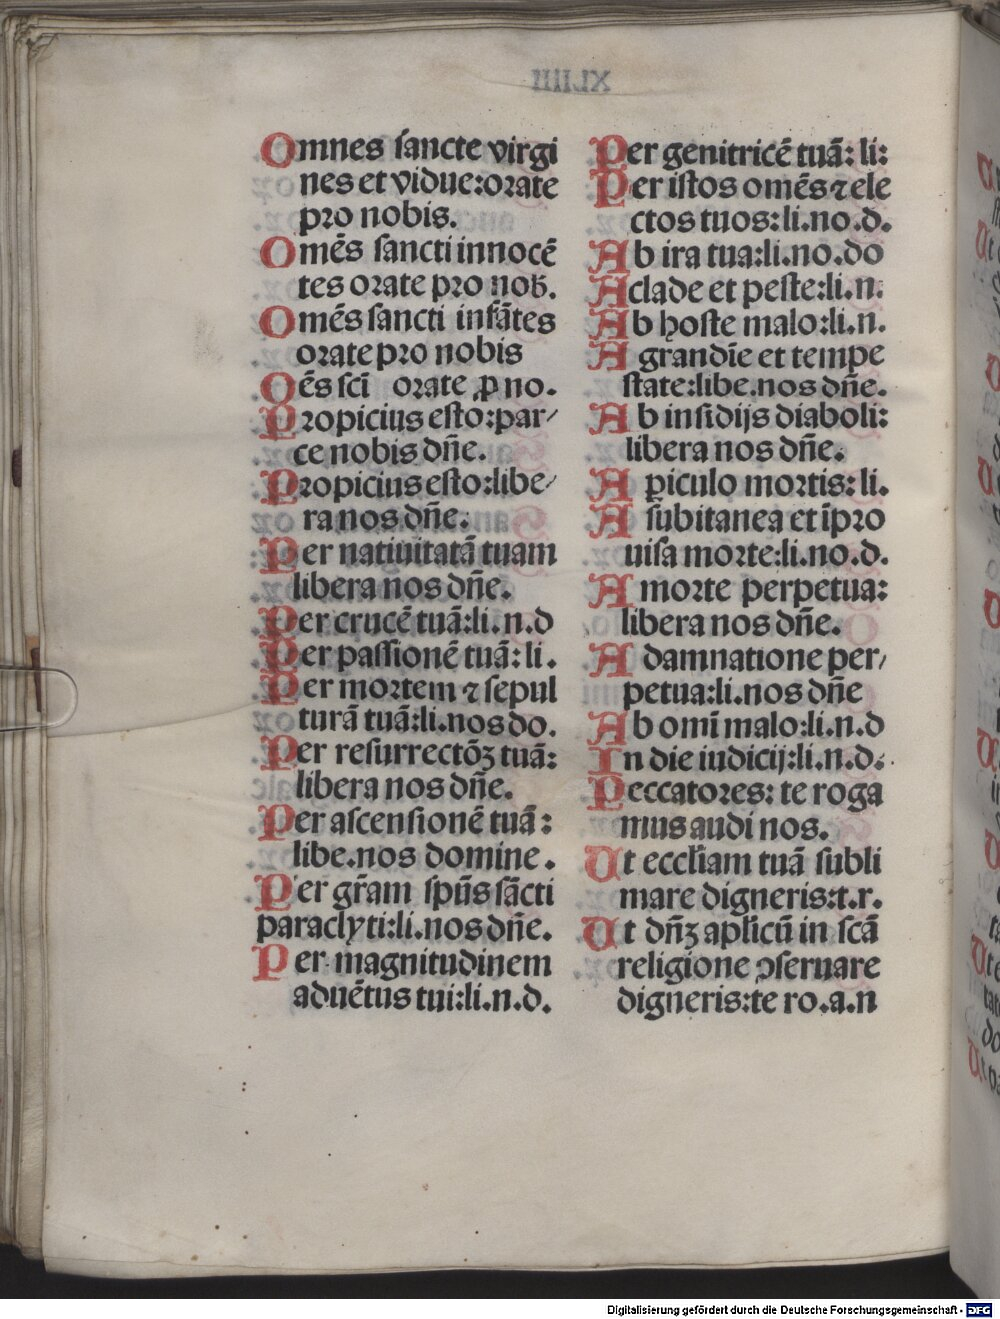 Omnes sancte virgi
nes et vidue:orate
pro nobis.
Omẽs sancti innocẽ
tes orate pro nob̃.
Omẽs sancti infãtes
orate pro nobis
Oẽs scĩ orate ꝓ no.
Propicius esto:par/
ce nobis dñe.
Propicius esto:libe/
ra nos dñe.
Per natiuitatã tuam
libera nos dñe.
Per crucẽ tuã:li.n.d
Per passionẽ tuã:li.
Per mortem ⁊ sepul
turã tuã:li.nos do.
Per resurrectõꝫ tuã:
libera nos dñe.
Per ascensionẽ tuã:
libe.nos domine.
Per gr̃am spũs sãcti
paraclyti:li.nos dñe.
Per magnitudinem
aduẽtus tui:li.n.d.
Per genitricẽ tuã:li:
Per istos omẽs ⁊ ele
ctos tuos:li.no.d.
Ab ira tua:li.no.do
A clade et peste:li.n:
Ab hoste malo:li.n.
A grandĩe et tempe
state:libe.nos dñe.
Ab insidijs diaboli:
libera nos dñe.
A ꝑiculo mortis:li.
A subitanea et ĩpro
uisa morte:li.no.d.
A morte perpetua:
libera nos dñe.
A damnatione per/
petua:li.nos dñe
Ab omĩ malo:li.n.d
In die iudicij:li.n.d.
Peccatores: te roga
mus audi nos.
Ut eccl̃iam tuã subli
mare digneris:t.r.
Ut dñꝫ apl̃icũ in scã
religione ꝯseruare
digneris:te ro.a.n
Digitalisierung gefördert durch die Deutsche Forschungsgemeinschaft - DFG